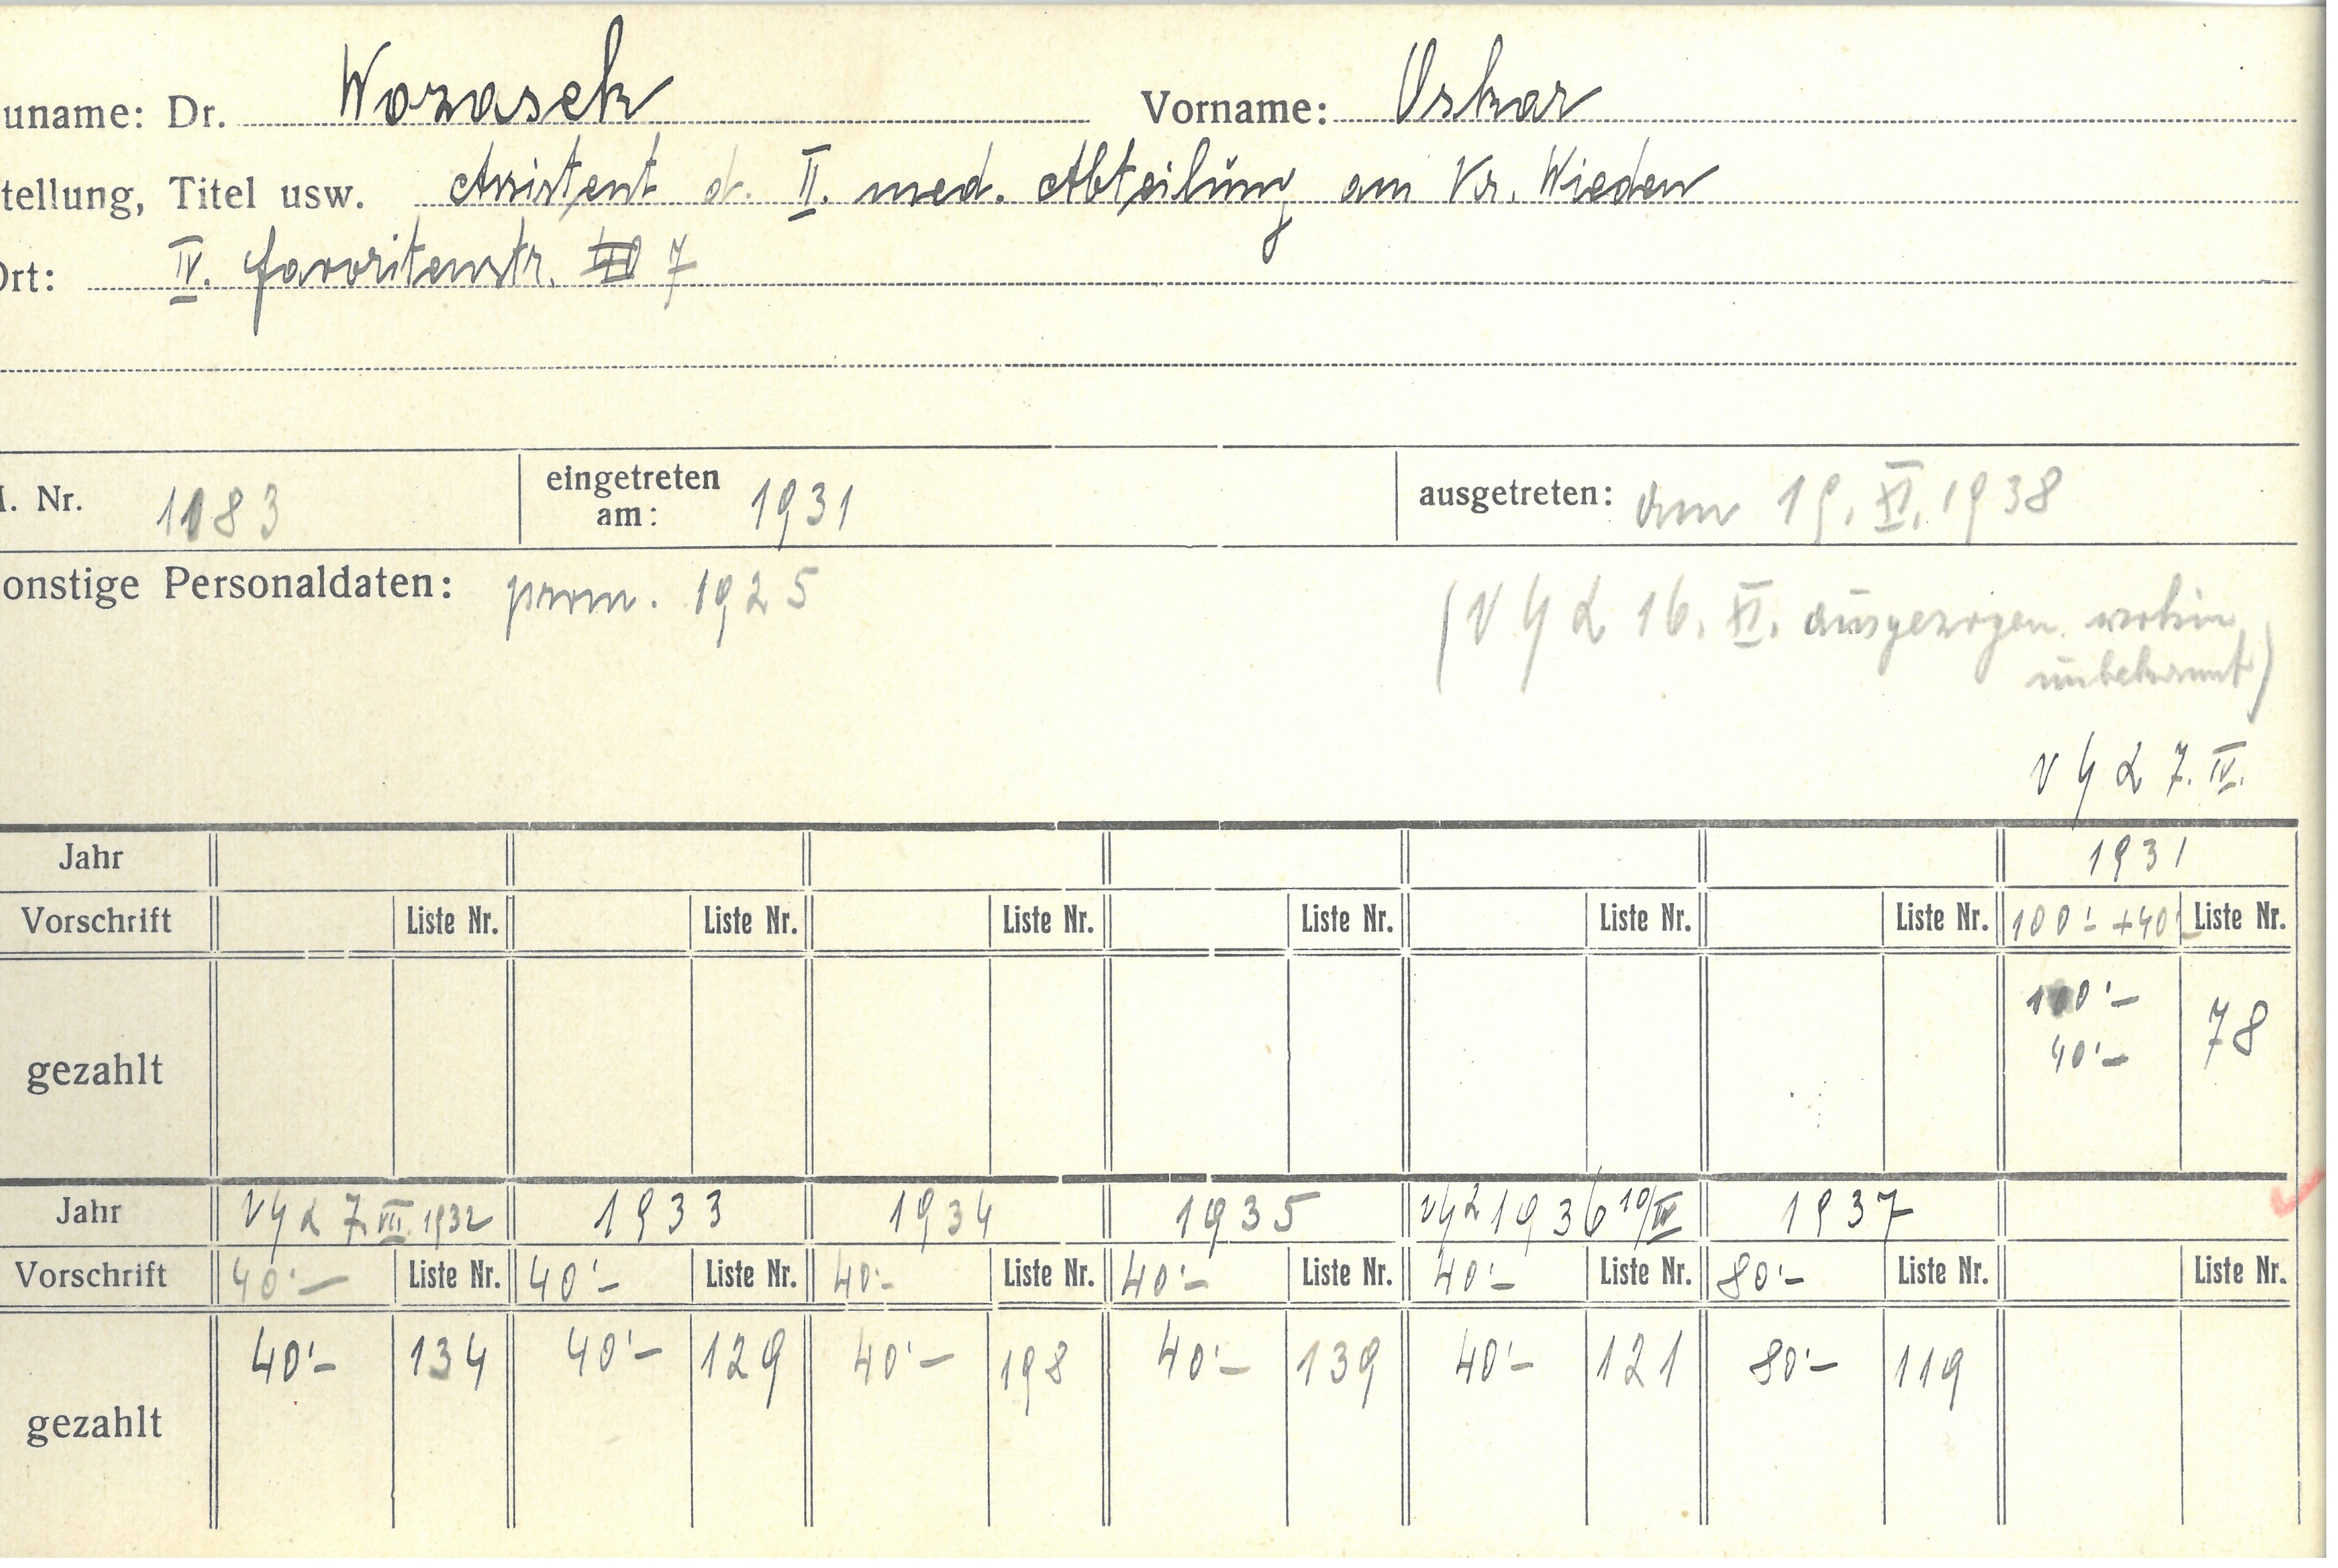 uname: Dr. Worasek Vorname: Oskar
tellung, Titel usw. Assistent d. II. med. Abteilung am Kr. Wieden
Ort: IV. Favoritenstr. 7
I. Nr. 1183 eingetreten am: 1931 ausgetreten: am 19. XI. 1938
onstige Personaldaten: prom. 1925 (V G L 16. XI. ausgezogen. wohin
unbekannt)
V G L 7. IV.
Jahr 1931
Vorschrift Liste Nr. Liste Nr. Liste Nr. Liste Nr. Liste Nr. Liste Nr. 100'- + 40'- Liste Nr.
100'-
40'- 78
gezahlt
Jahr V G L 7. VII. 1932 1933 1934 1935 V G L 1936 10/IV 1937
Vorschrift 40'- Liste Nr. 40'- Liste Nr. 40'- Liste Nr. 40'- Liste Nr. 40'- Liste Nr. 80'- Liste Nr. Liste Nr.
40'- 134 40'- 129 40'- 198 40'- 139 40'- 121 80'- 119
gezahlt